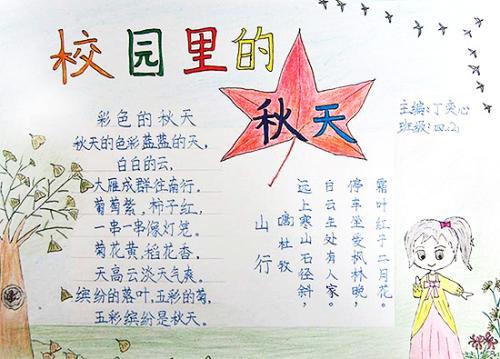 校园里的
秋天
主编:丁奕心
班级:四.2)
彩色的秋天
秋天的色彩蓝蓝的天,
白白的云,
大雁成群往南行。
葡萄紫,柿子红,
一串一串像灯笼。
菊花黄,稻花香,
天高云淡天气爽。
缤纷的落叶,五彩的菊,
五彩缤纷是秋天。
山行
唐杜牧
远上寒山石径斜,
白云生处有人家。
停车坐爱枫林晚,
霜叶红于二月花。